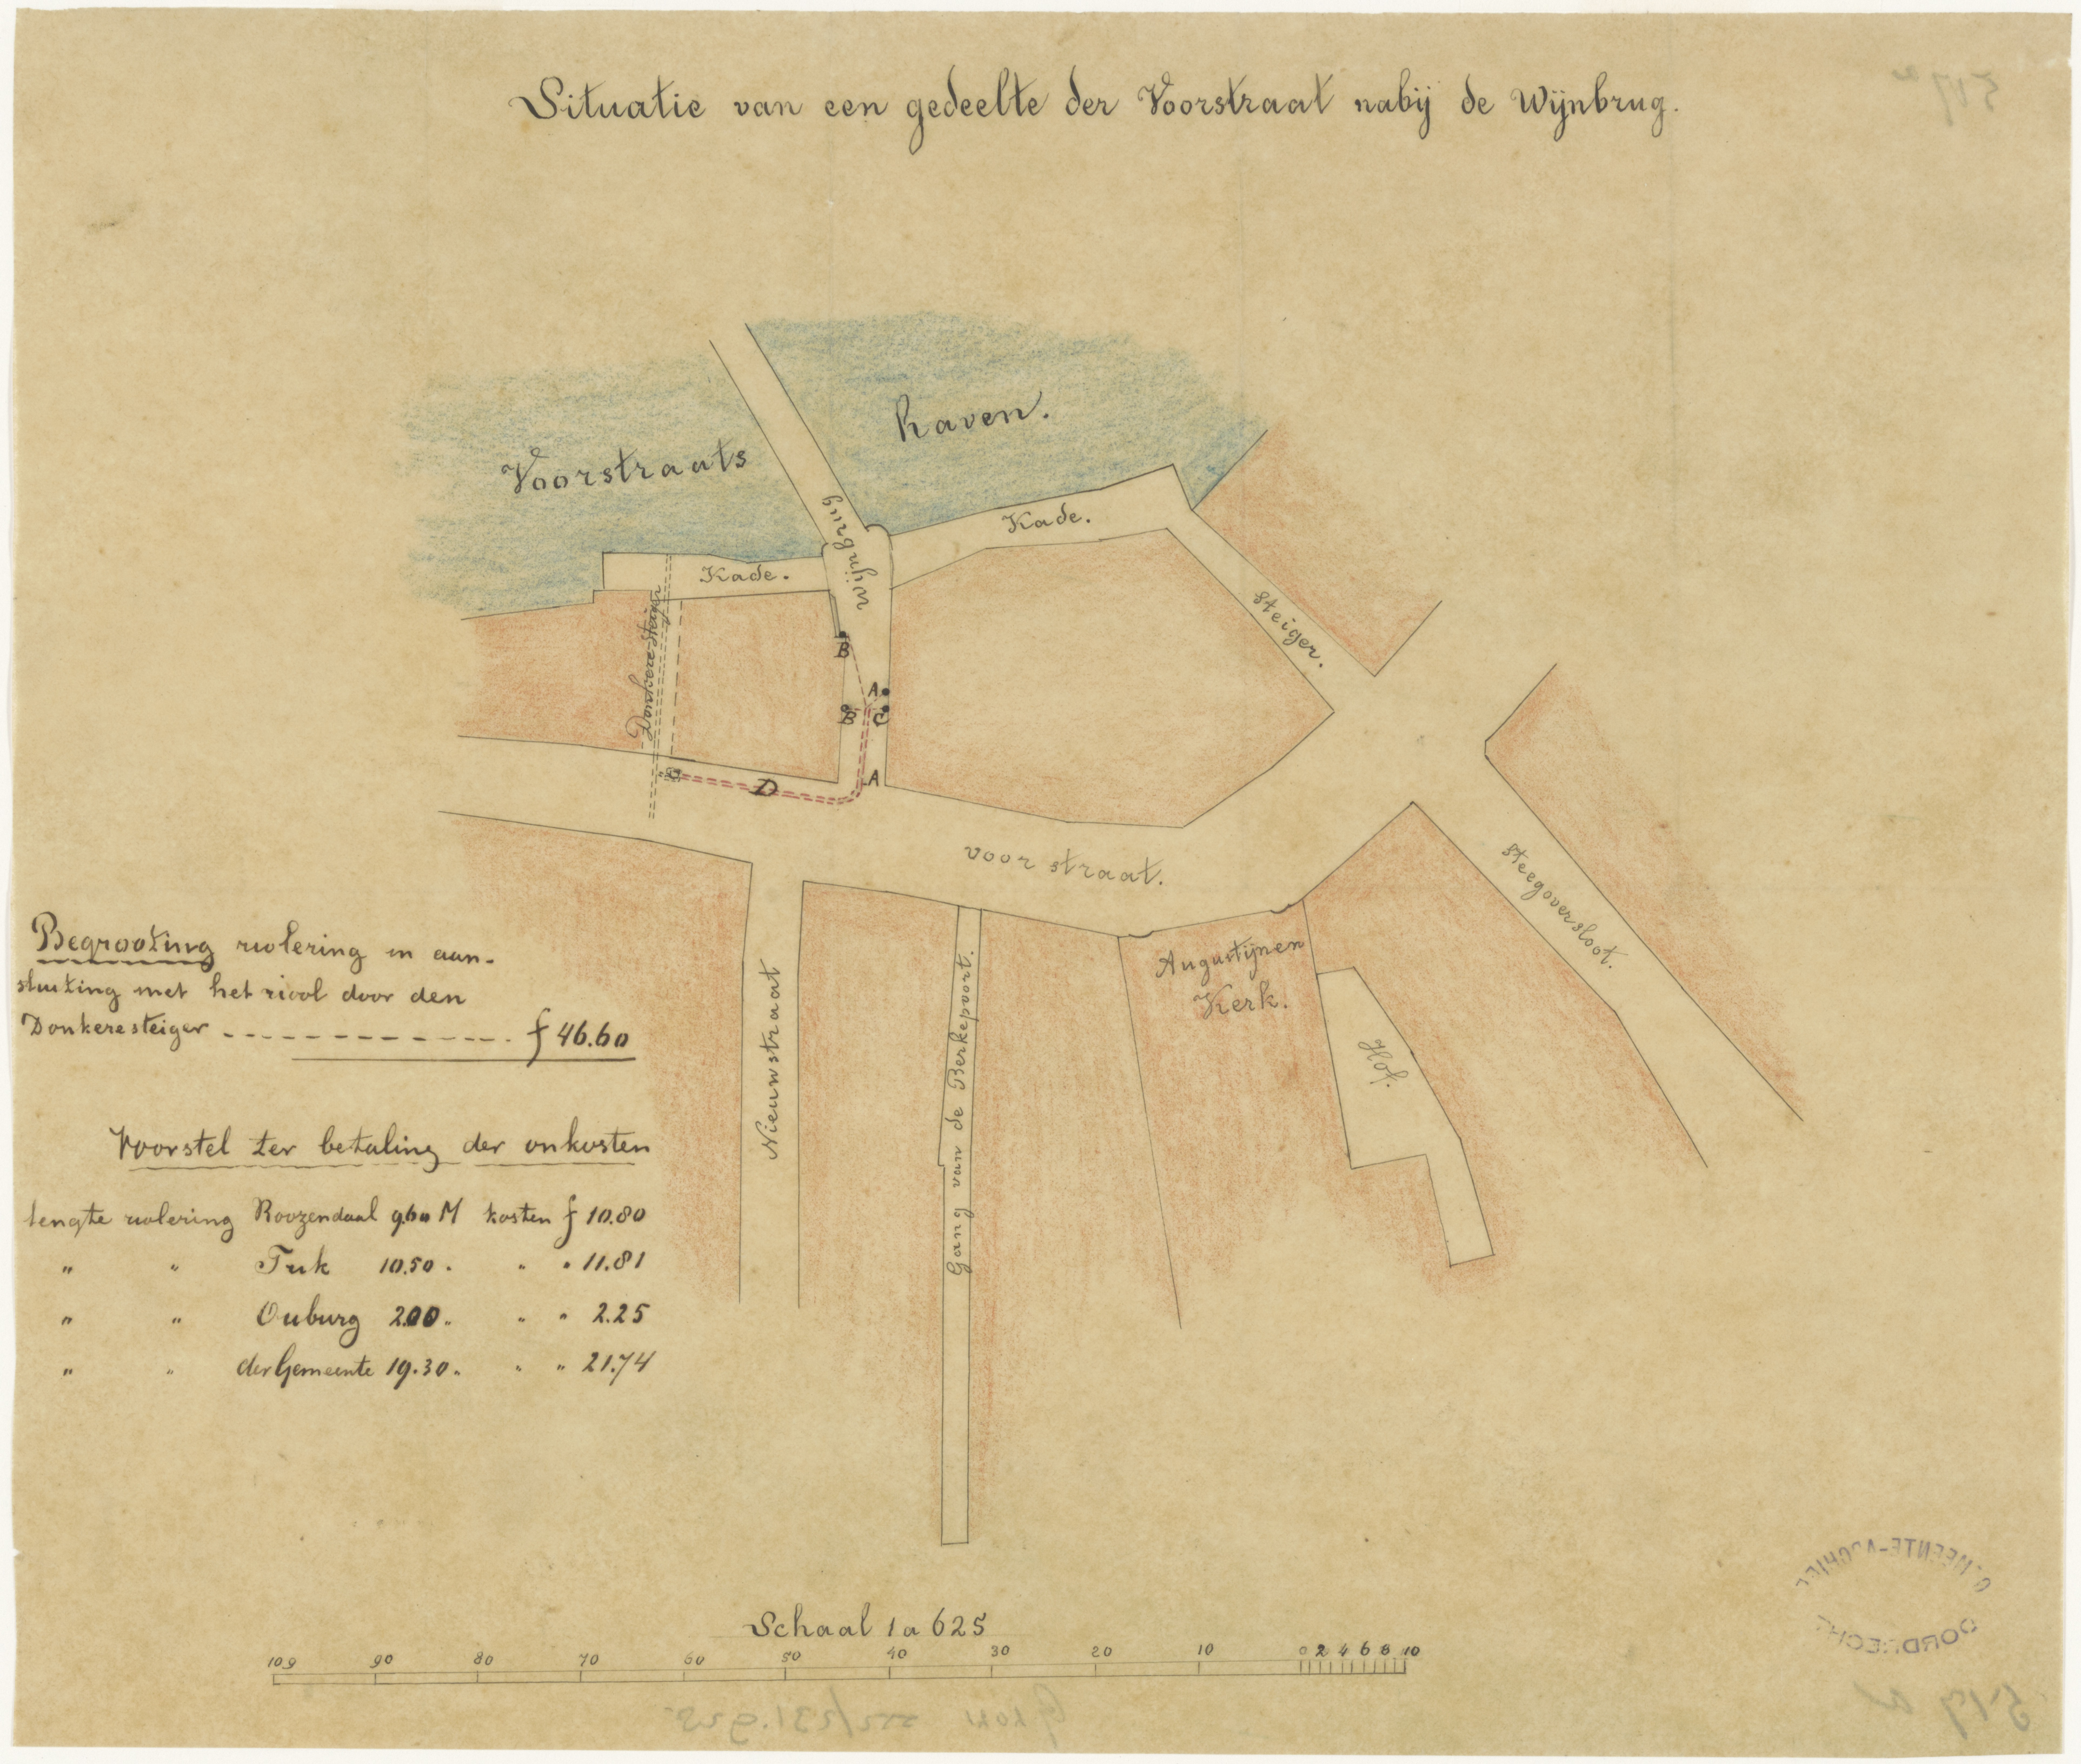 Situatie van een gedeelte der Voorstraat nabij de Wijnbrug.
Voorstraats
haven.
Wijnbrug
Kade.
Kade.
Donkere steiger
steiger.
B
A
B
C
A
D
voor straat.
steegoversloot.
Augustijnen
Kerk.
Hof.
Nieuwstraat
Gang van de Berkepoort.
Begrooting riolering in aan-
sluiting met het riool door den
Donkeresteiger f 46.60
Voorstel ter betaling der onkosten
lengte riolering Roozendaal 9.60 M kosten f 10.80
" " Tuk 10.50 " " " 11.81
" " Ouburg 2.00 " " " 2.25
" " der Gemeente 19.30 " " " 21.74
Schaal 1 a 625
100 90 80 70 60 50 40 30 20 10 0 2 4 6 8 10
GEMEENTE-ARCHIEF
DORDRECHT